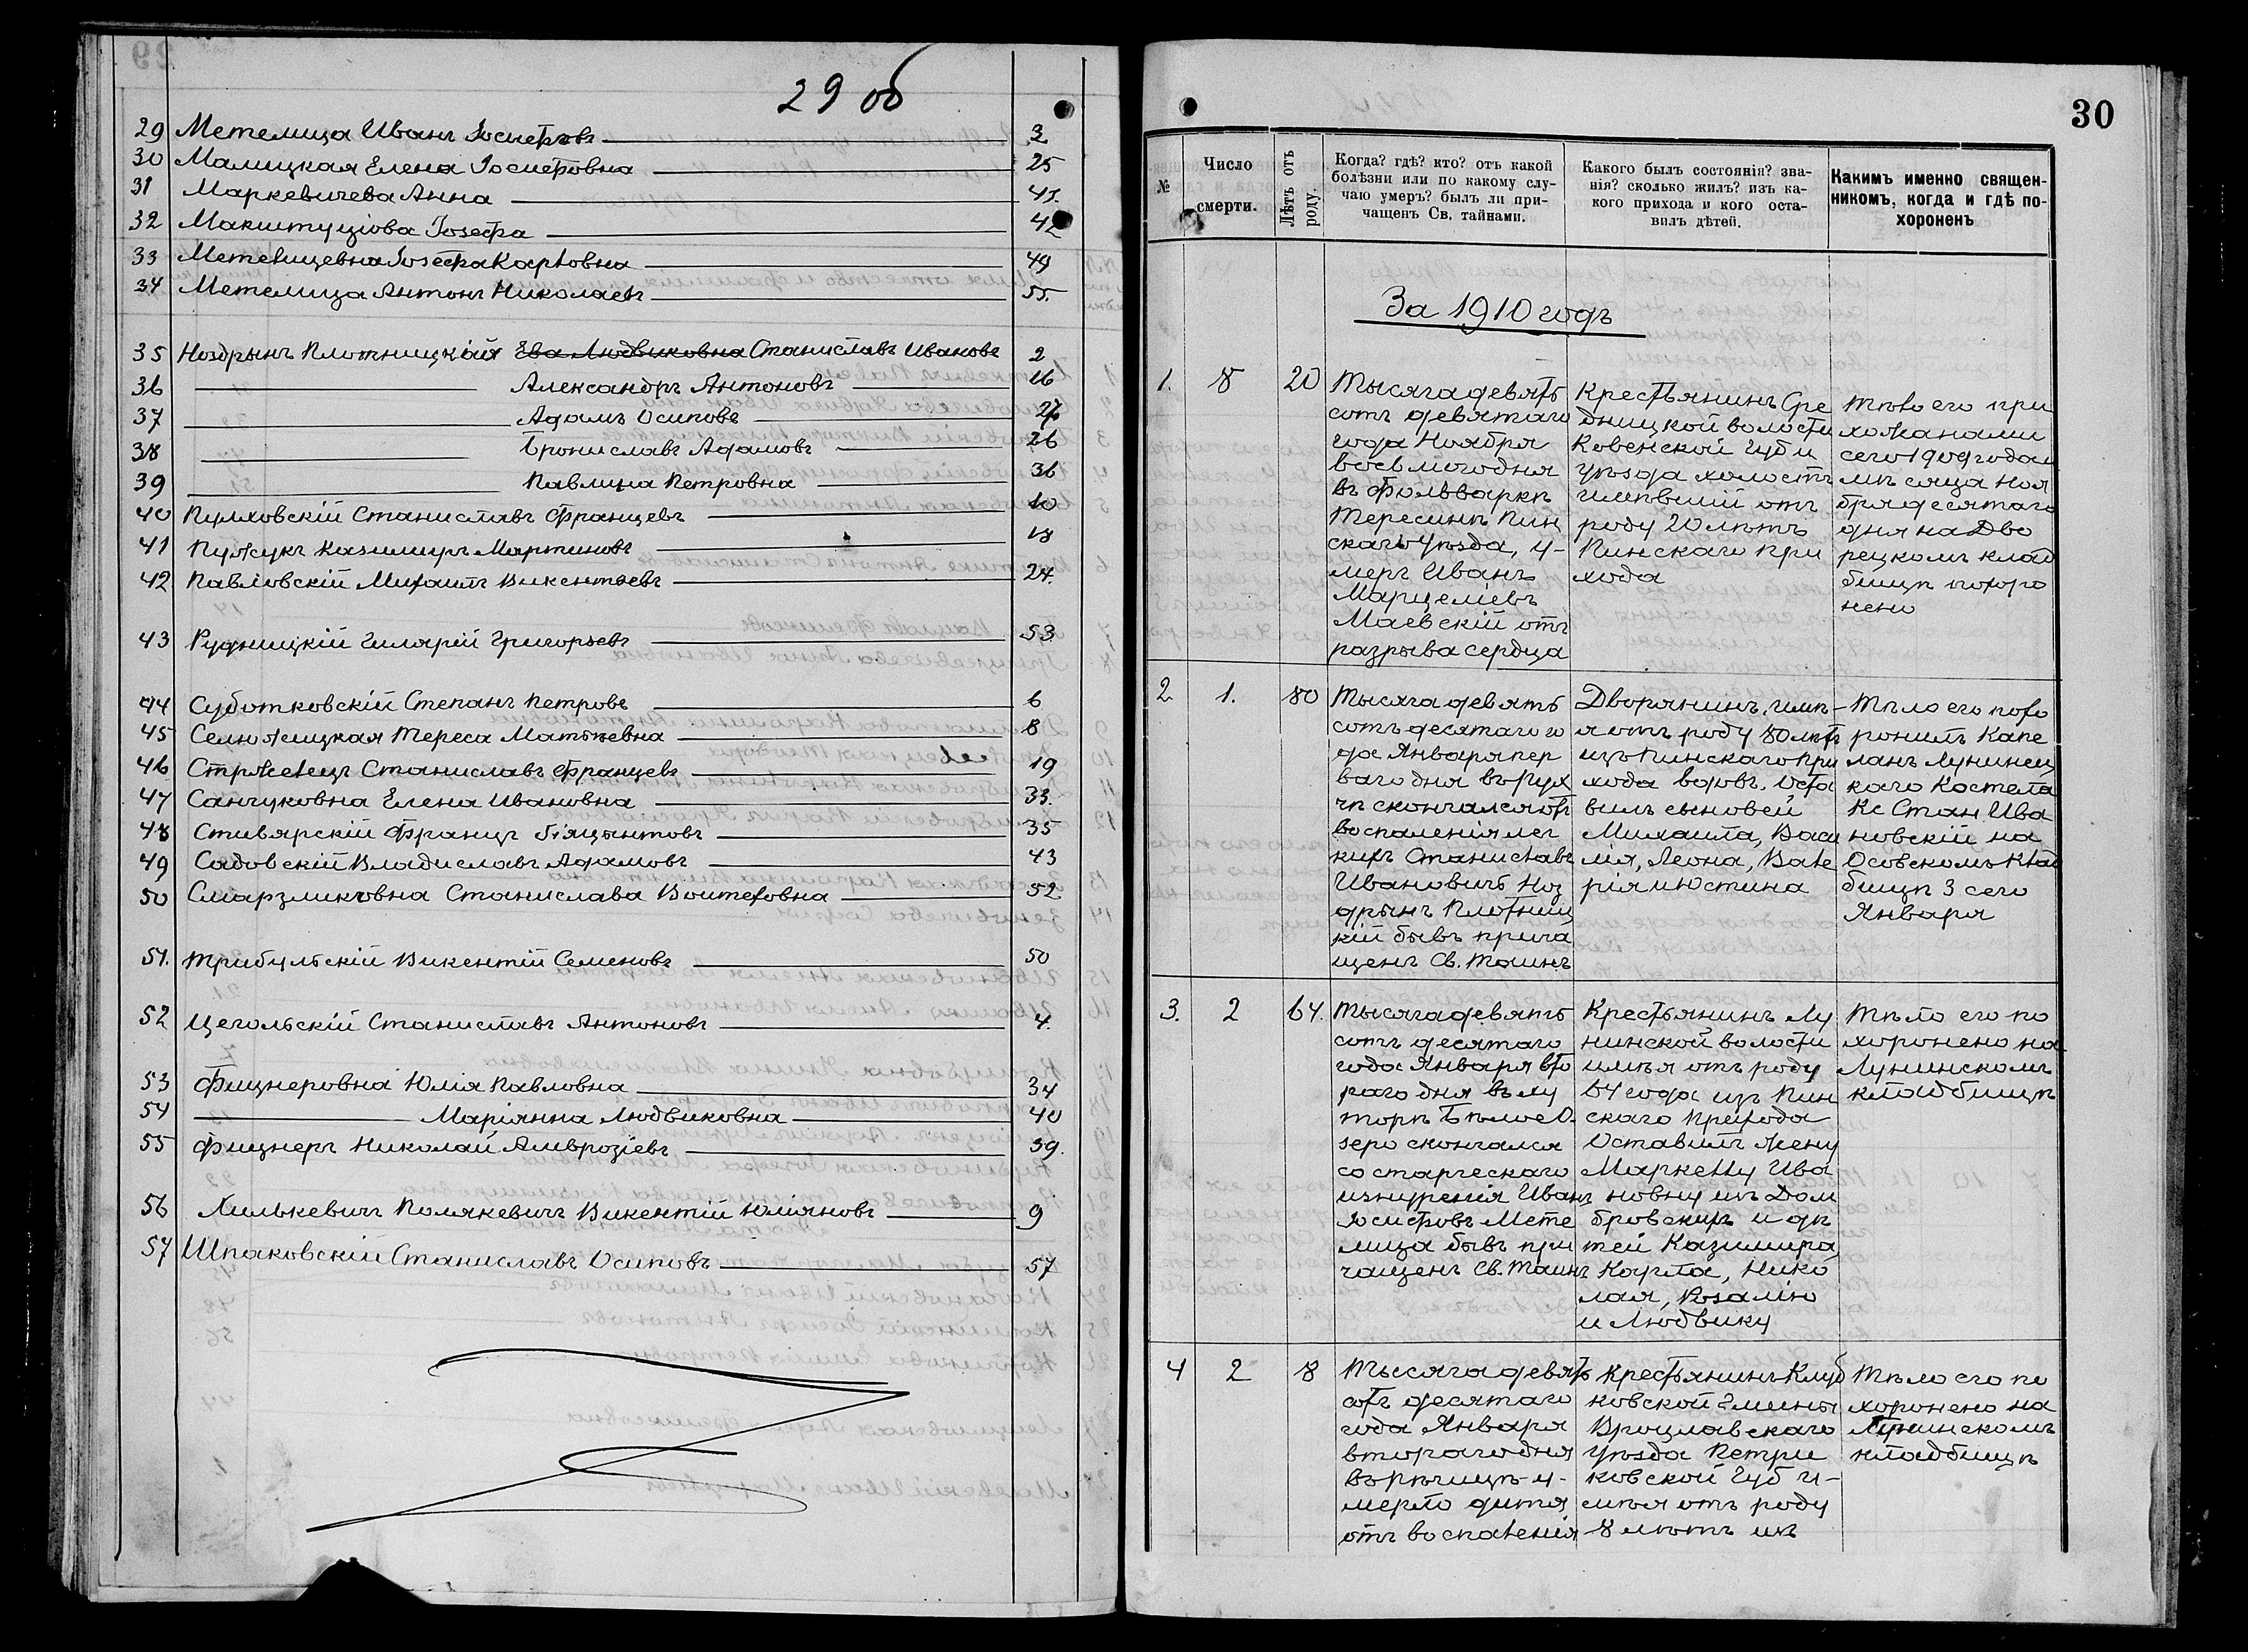 29 об
29 Метелица Иванъ Іосифовъ 3
30 Малицкая Елена Іосифовна 25
31 Маркевичева Анна 45.
32 Макштуціова Іозефа 42
33 Метелицевна Іозефа Карловна 49
34 Метелица Антонъ Николаевъ 55.
35 Ноздрынъ Плотницкій Ева Людвиковна Станиславъ Ивановъ 2
36 Александръ Антоновъ 16
37 Адамъ Осиповъ 27
38 Брониславъ Адамовъ 26
39 Павлина Петровна 36
40 Пулховскій Станиславъ Францевъ 10
41 Пужукъ Казимиръ Мартиновъ 18
42 Павловскій Михаилъ Викентьевъ 24.
43 Рудницкій Гилярій Григорьевъ 53.
44 Суботковскій Степанъ Петровъ 6
45 Селюжицкая Тереса Матвѣевна 8
46 Стржелецъ Станиславъ Францевъ 19
47 Санчуковна Елена Ивановна 33.
48 Стивярскій Францъ Гіяцынтовъ 35
49 Садовскій Владиславъ Адамовъ 43
50 Смарзликовна Станислава Войтеховна 52
51. Трибульскій Викентій Семеновъ 50
52 Цегольскій Станиславъ Антоновъ 4.
53 Фицнеровна Юлія Павловна 34
54 Маріянна Людвиковна 40
55 Фицнеръ Николай Амврозіевъ 39.
56 Хилькевичъ Полякевичъ Викентій Юліяновъ 9
57 Шпаковскій Станиславъ Осиповъ 57
30
№
Число смерти.
Лѣтъ отъ роду.
Когда? гдѣ? кто? отъ какой
болѣзни или по какому слу-
чаю умеръ? былъ ли при-
чащенъ Св. тайнами.
Какого былъ состоянія? зва-
нія? сколько жилъ? изъ ка-
кого прихода и кого оста-
вилъ дѣтей.
Какимъ именно священ-
никомъ, когда и гдѣ по-
хороненъ
За 1910 годъ
1. 8 20
Тысяча девять
сотъ девятаго
года Ноября
восьмого дня
въ фольваркѣ
Тересинѣ Пин
скаго Уѣзда, у-
меръ Иванъ
Марцеліевъ
Маевскій отъ
разрыва сердца
Крестьянинъ Сре
дницкой волости
Ковенской Губ и
уѣзда холостъ
имѣвшій отъ
роду 20 лѣтъ
Пинскаго при
хода
Тѣло его при
хожанами
сего 1909 года
мѣсяца Ноя
бря десятаго
дня на Дво
рецкомъ клад
бищѣ похоро
нено
2 1. 80
Тысяча девять
сотъ десятаго го
да Января пер
ваго дня въ Рух
чѣ скончался отъ
воспаленія лег
кихъ Станиславъ
Ивановичъ Ноз
дрынъ Плотниц
кій бывъ прича
щенъ Св. Таинъ
Дворянинъ, имѣ-
я отъ роду 80 лѣтъ
изъ Пинскаго при
хода вдовъ. Оста
вилъ сыновей
Михаила, Васи
лія, Леона, Вале
рія и Юстина
Тѣло его похо
ронилъ Капе
ланъ Лунинец
каго Костела
Кс Стан. Ива
новскій на
Осовскомъ клад
бищѣ 3 сего
Января
3. 2 64.
Тысяча девять
сотъ десятаго
года Января вто
раго дня въ ху
торѣ Бѣлое О.
зеро скончался
со старческаго
изнуренія Иванъ
Іосифовъ Мете
лица бывъ при
чащенъ Св. Таинъ
Крестьянинъ Лу
нинской волости
имѣя отъ роду
64 года изъ Пин
скаго прихода
Оставилъ жену
Маркеллу Ива
новну изъ Дом
бровскихъ и дѣ
тей Казимира
Карла, Нико
лая, Розалію
и Людвику
Тѣло его по
хоронено на
Лунинскомъ
кладбищѣ
4 2 8
Тысяча девять
сотъ десятаго
года Января
второго дня
въ Рѣчицѣ у-
мерло дитя
отъ воспаленія
Крестьянинъ Клуб
ковской Гмины
Вроцлавскаго
Уѣзда Петри
ковской Губ и-
мѣя отъ роду
8 лѣтъ изъ
Тѣло его по
хоронено на
Лунинскомъ
кладбищѣ